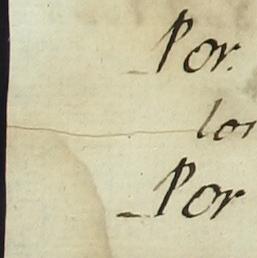 Por.
los
Por